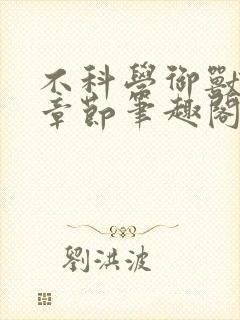 不科學御獸
章節筆趣閣
劉洪波